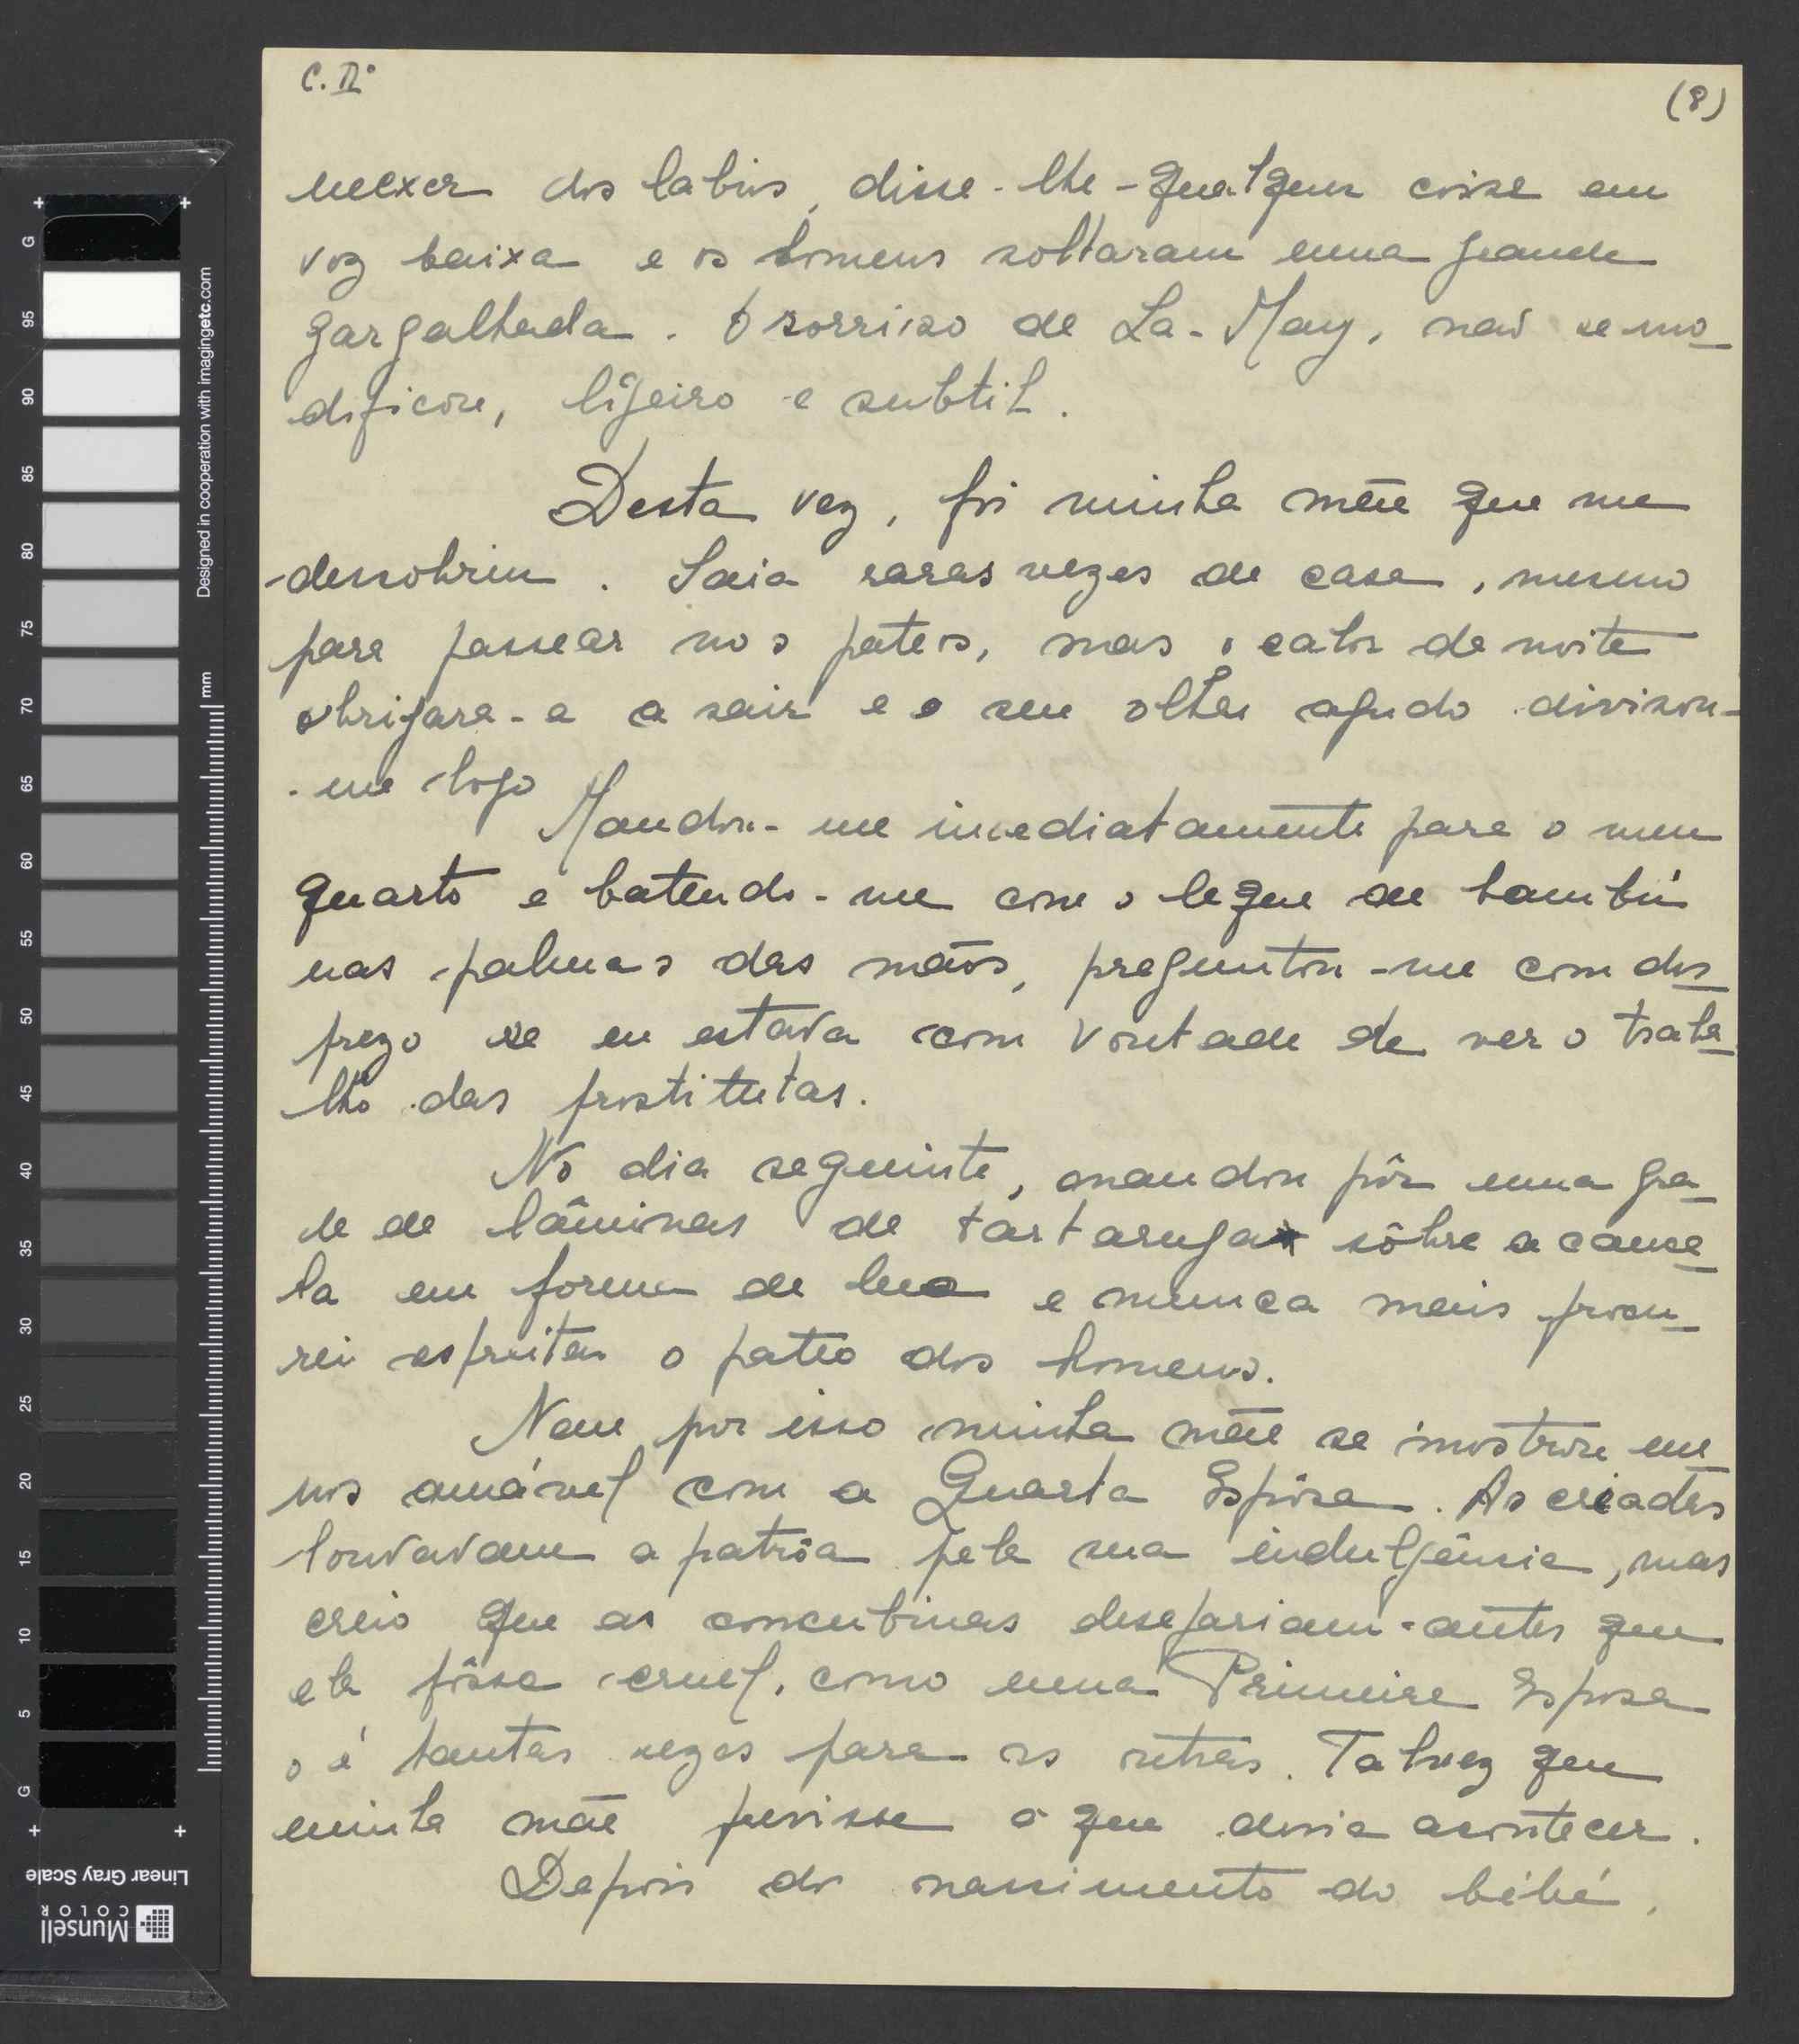 C. II.º
(8)
mexer dos labios, disse-lhe qualquer coisa em
voz baixa e os homens soltaram uma grande
gargalhada. O sorriso de La-May, não se mo_
dificou, ligeiro e subtil.
Desta vez, foi minha mãe que me
descobriu. Saia raras vezes de casa, mesmo
para passear nos pateos, mas o calor da noite
obrigara-a a sair e o seu olhar agudo divisou-
-me logo
Mandou-me imediatamente para o meu
quarto e batendo-me com o leque de bambú
nas palmas das mãos, preguntou-me com des_
prezo se eu estava com vontade de ver o traba_
lho das prostitutas.
No dia seguinte, mandou pôr uma gra_
de de lâminas de tartaruga sôbre a cance_
la em forma de lua e nunca mais procu_
rei espreitar o pateo dos homens.
Nem por isso minha mãe se mostrou me_
nos amável com a Quarta Espôsa. As criadas
louvavam a patrôa pela sua indulgência, mas
creio que as concubinas desejariam antes que
ela fôsse cruel, como uma Primeira Esposa
o é tantas vezes para as outras. Talvez que
minha mãe previsse o que devia acontecer.
Depois do nascimento do bébé,
G
95
90
85
80
75
70
65
60
55
50
45
40
35
30
25
20
15
10
5
G
Designed in cooperation with imagingetc.com
mm
Linear Gray Scale
Munsell
COLOR